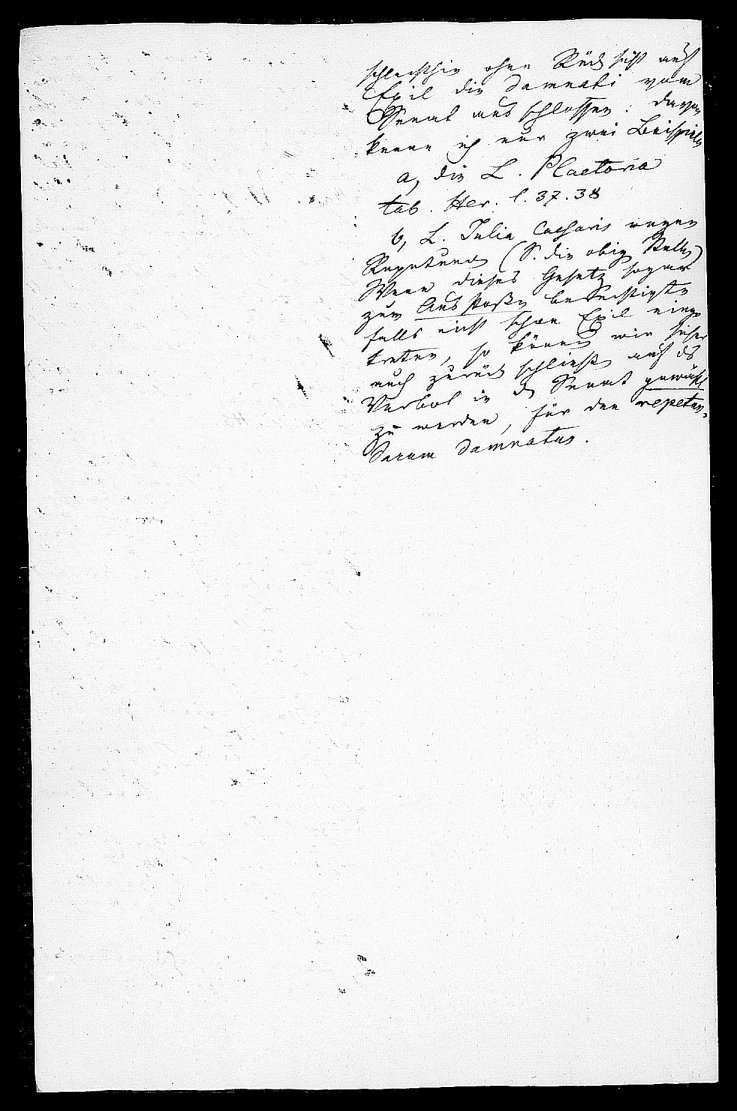 schlechthin ohne Rücksicht auf
Exil die damnati vom
Senat ausschlossen: davon
kenne ich nur zwei Beispiele
a, die L. Plaetoria
tab. Her. l. 37.38
b, L. Julia Caesaris wegen
Repetunden (S. die obige Stelle)
Wenn dieses Gesetz sogar
zum Ausstoßen berechtigte
falls nicht schon Exil einge
treten, so können wir sicher
auch zurück schließen auf das
Verbot in den Senat gewählt
zu werden, für den repetun-
darum damnatus.